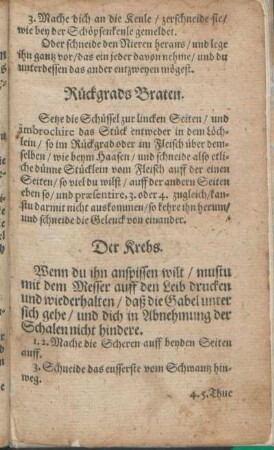 3. Mache dich an die Keule / zerschneide sie /
wie bey der Schöpsenkeule gemeldet.
Oder schneide den Nieren heraus / und lege
ihn gantz vor / das ein jeder davon nehme / und du
unterdessen das ander entzweyen mögest.
Rückgrads Braten.
Setze die Schüssel zur lincken Seiten / und
ambrochire das Stück entweder in dem Löch-
lein / so im Rückgrad oder im Fleisch über dem-
selben / wie beym Haasen / und schneide also etli-
che dünne Stücklein vom Fleisch auff der einen
Seiten / so viel du wilst / auff der andern Seiten
eben so / und præsentire, 3. oder 4. zugleich / kan-
stu darmit nicht auskommen / so kehre ihn herum /
und schneide die Gelenck von einander.
Der Krebs.
Wenn du ihn anspissen wilt / mustu
mit dem Messer auff den Leib drucken
und wiederhalten / daß die Gabel unter
sich gehe / und dich in Abnehmung der
Schalen nicht hindere.
1. 2. Mache die Scheren auff beyden Seiten
auff.
3. Schneide das eusserste vom Schwantz hin-
weg.
4. 5. Thue